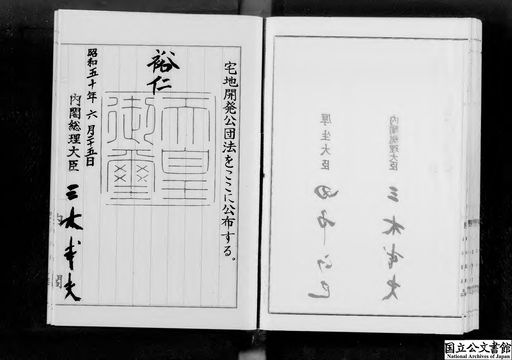 内閣総理大臣 三木武夫
厚生大臣
宅地開発公団法をここに公布する。
裕仁
天皇御璽
昭和五十年六月二十五日
内閣総理大臣 三木武夫
内閣
国立公文書館
National Archives of Japan